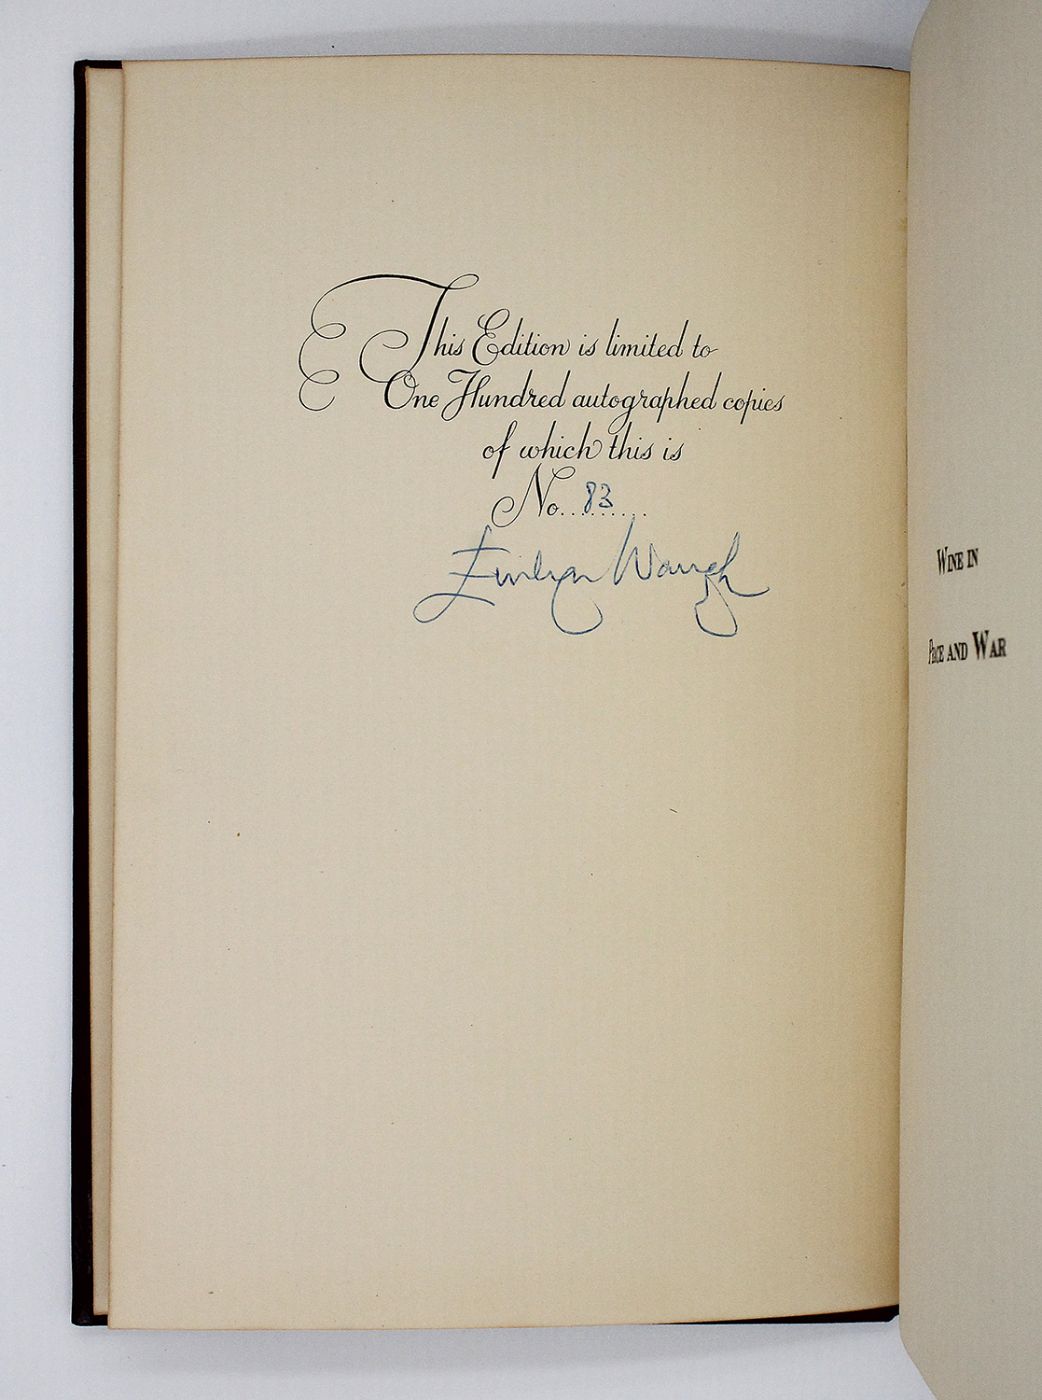 This Edition is limited to
One Hundred autographed copies
of which this is
No. 83
Evelyn Waugh
WINE IN
PEACE AND WAR